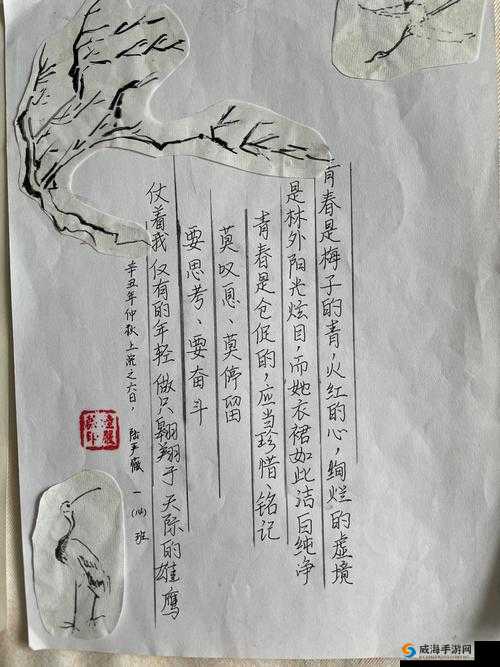 青春是梅子的青,火红的心,绚烂的虚境
是林外阳光炫目,而她衣裙如此洁白纯净
青春是仓促的,应当珍惜、铭记
莫叹息、莫停留
要思考、要奋斗
仗着我仅有的年轻做只翱翔于天际的雄鹰
辛丑年仲秋上浣之六日,
一(14)班
威海手游网